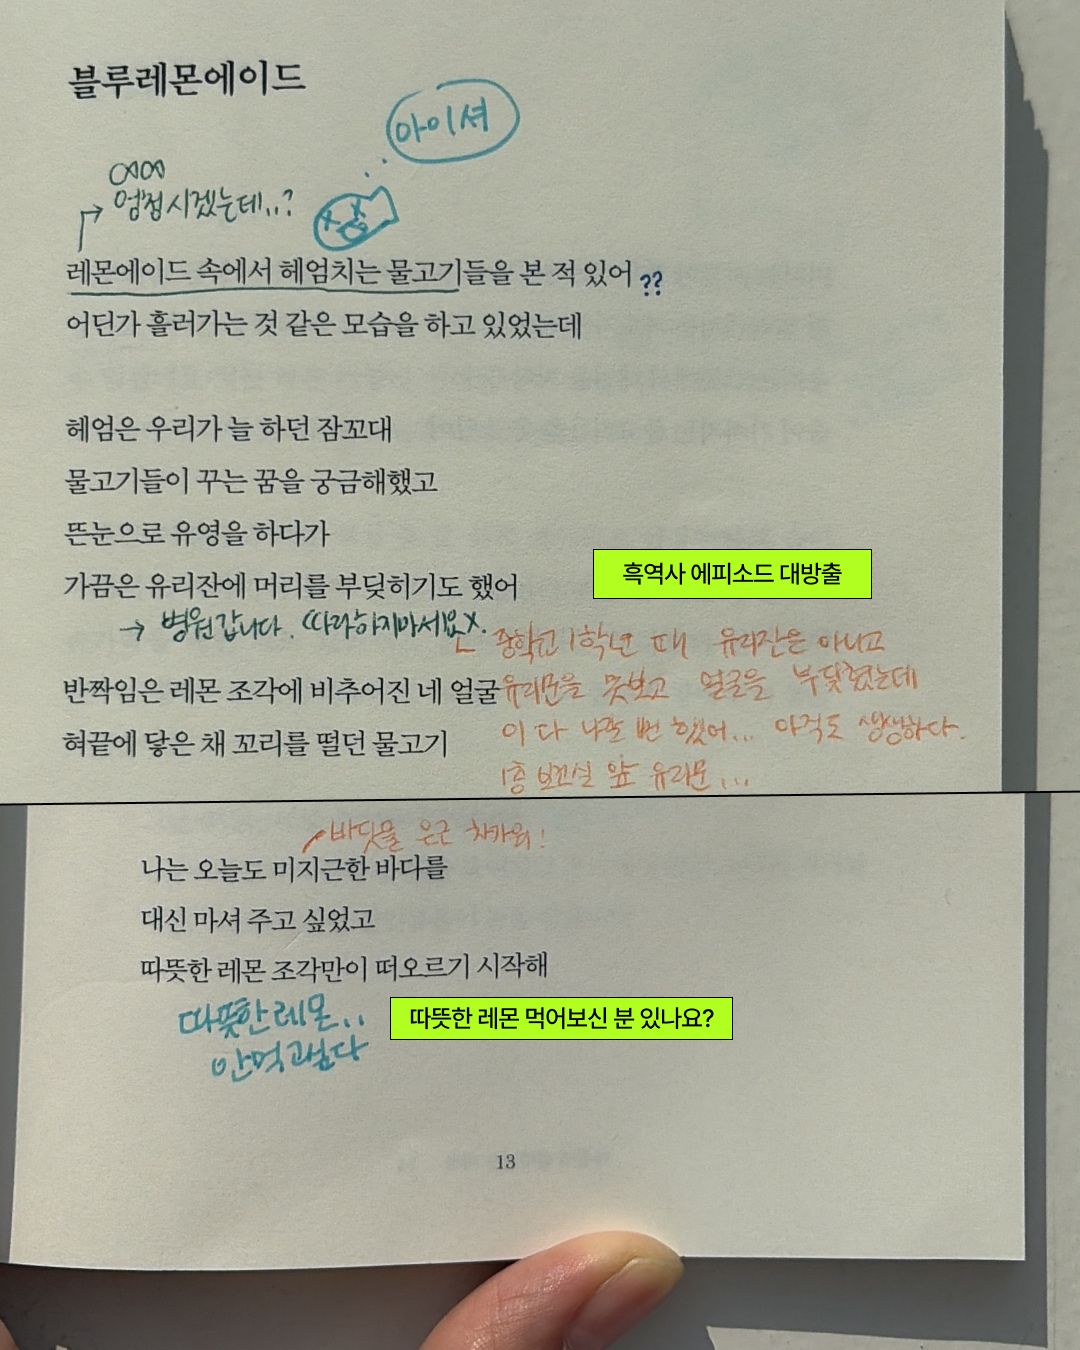 블루레몬에이드
아이셔
엄청 시겠는데..?
레몬에이드 속에서 헤엄치는 물고기들을 본 적 있어 ??
어딘가 흘러가는 것 같은 모습을 하고 있었는데
헤엄은 우리가 늘 하던 잠꼬대
물고기들이 꾸는 꿈을 궁금해했고
뜬눈으로 유영을 하다가
가끔은 유리잔에 머리를 부딪히기도 했어
흑역사 에피소드 대방출
→ 병원갑니다. 따라하지마세요
중학교 1학년 때 유리잔은 아니고
반짝임은 레몬 조각에 비추어진 네 얼굴
유리문을 못보고 얼굴을 부딪혔는데
이 다 나갈 뻔 했어... 아직도 생생하다.
혀끝에 닿은 채 꼬리를 떨던 물고기
1층 보건실 앞 유리문...
바닷물 은근 차가워!
나는 오늘도 미지근한 바다를
대신 마셔 주고 싶었고
따뜻한 레몬 조각만이 떠오르기 시작해
따뜻한 레몬..
안먹고싶다
따뜻한 레몬 먹어보신 분 있나요?
13